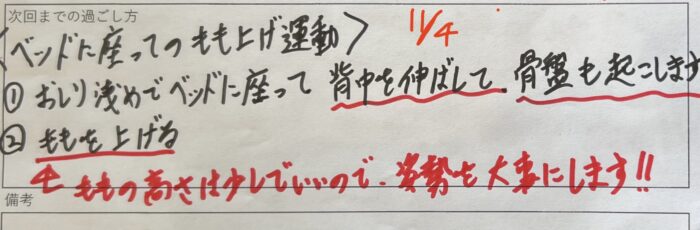 次回までの過ごし方
11/4
〈ベッドに座ってのもも上げ運動〉
① おしり浅めでベッドに座って 背中を伸ばして、骨盤も起こします
② ももを上げる
ももの高さは少しでいいので、姿勢を大事にします!!
備考